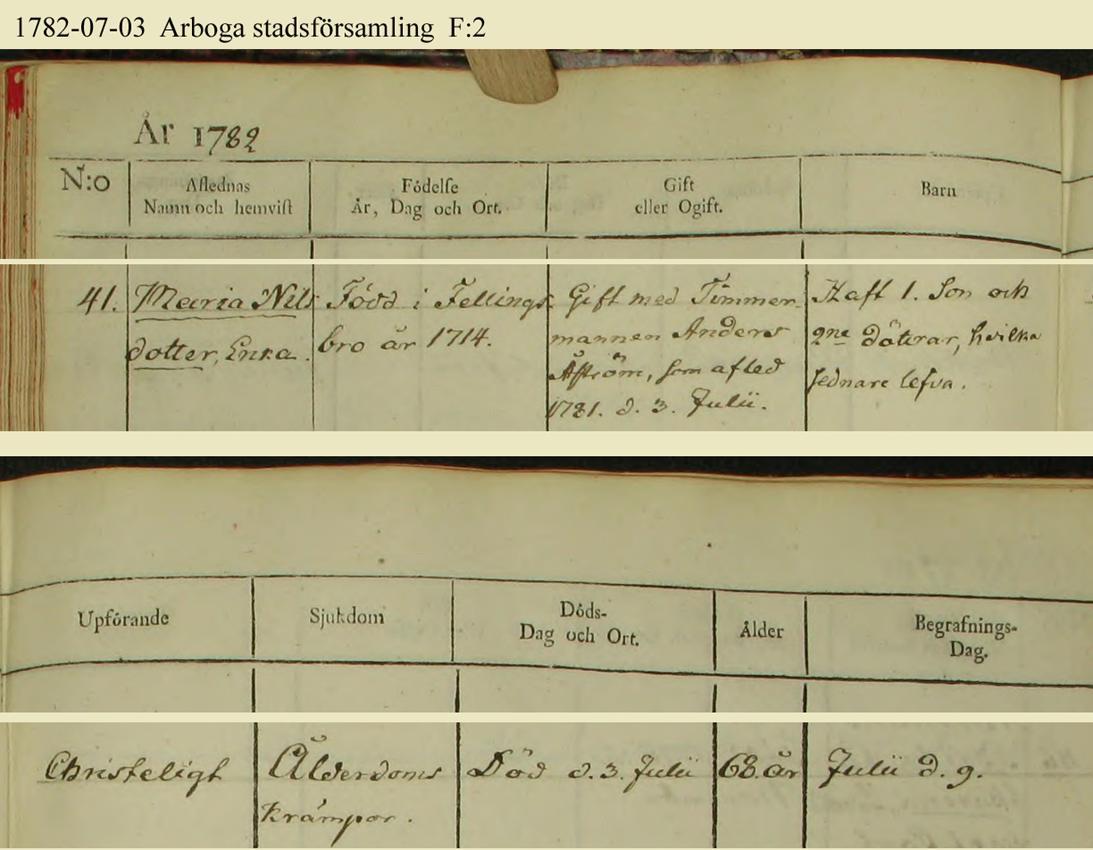 1782-07-03 Arboga stadsförsamling F:2
År 1782
N:o
Aflednas
Namn och hemvist
Födelse
År, Dag och Ort.
Gift
eller Ogift.
Barn
41.
Maria Nils
dotter, Enka.
Född i Fellings
bro år 1714.
Gift med Timmer
mannen Anders
Åström, som afled
1781. d. 3. Julii.
Haft 1. Son och
2ne Döttrar, hvilka
sednare lefva.
Upförande
Sjukdom
Döds-
Dag och Ort.
Ålder
Begrafnings-
Dag.
Christeligt
Ålderdoms
Krämpor.
Död d. 3. Julii
68. år
Julii d. 9.